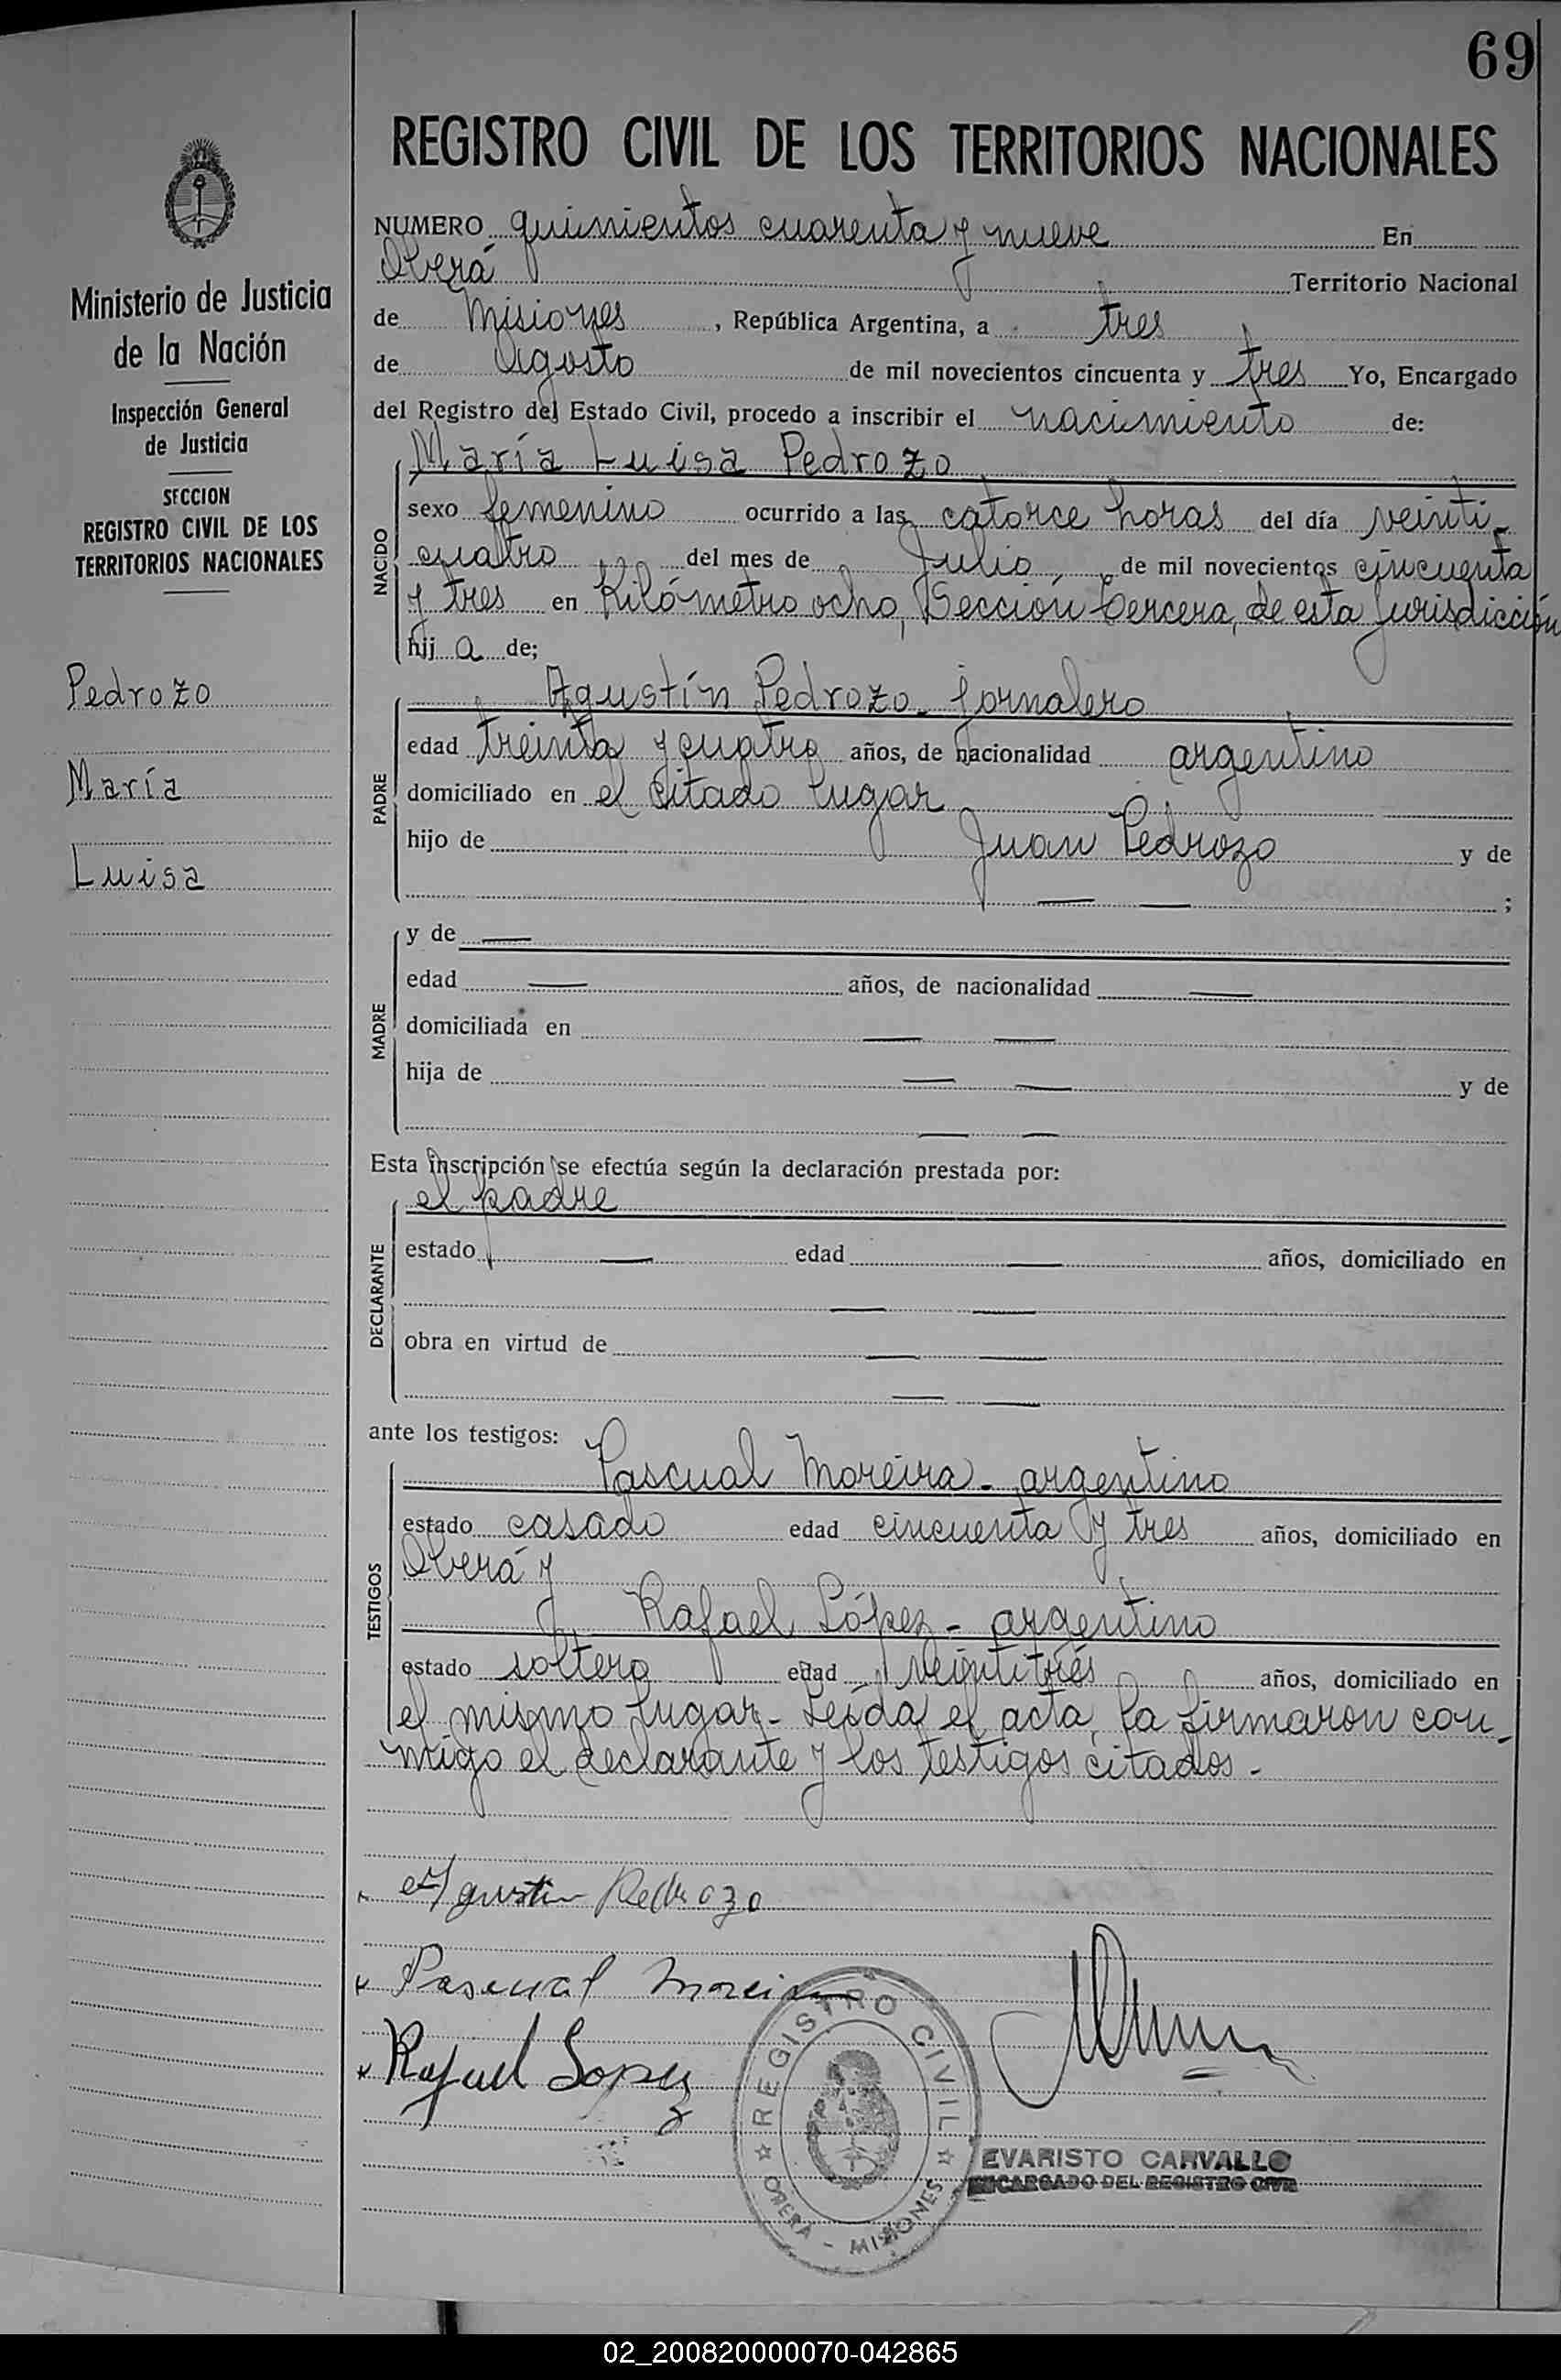 69
REGISTRO CIVIL DE LOS TERRITORIOS NACIONALES
Ministerio de Justicia
de la Nación
Inspección General
de Justicia
SECCION
REGISTRO CIVIL DE LOS
TERRITORIOS NACIONALES
Pedrozo
María
Luisa
NUMERO quinientos cuarenta y nueve En
Oberá Territorio Nacional
de Misiones, República Argentina, a tres
de Agosto de mil novecientos cincuenta y tres Yo, Encargado
del Registro del Estado Civil, procedo a inscribir el nacimiento de:
NACIDO
María Luisa Pedrozo
sexo femenino ocurrido a las catorce horas del día veinti-
cuatro del mes de Julio, de mil novecientos cincuenta
y tres en Kilómetro ocho, Sección tercera, de esta jurisdicción
hij a de;
PADRE
Agustín Pedrozo - jornalero
edad treinta y cuatro años, de nacionalidad argentino
domiciliado en el citado lugar
hijo de Juan Pedrozo y de
— — ;
MADRE
y de —
edad — años, de nacionalidad —
domiciliada en — —
hija de — — y de
— —
Esta inscripción se efectúa según la declaración prestada por:
DECLARANTE
el padre
estado — edad — años, domiciliado en
— —
obra en virtud de — —
— —
ante los testigos:
TESTIGOS
Pascual Moreira - argentino
estado casado edad cincuenta y tres años, domiciliado en
Oberá y
Rafael López - argentino
estado soltero edad veintitrés años, domiciliado en
el mismo lugar - Leída el acta, la firmaron con-
migo el declarante y los testigos citados -
Agustin Pedrozo
Pascual Moreira
Rafael Lopez
REGISTRO CIVIL
OBERA - MISIONES
EVARISTO CARVALLO
ENCARGADO DEL REGISTRO CIVIL
02_200820000070-042865